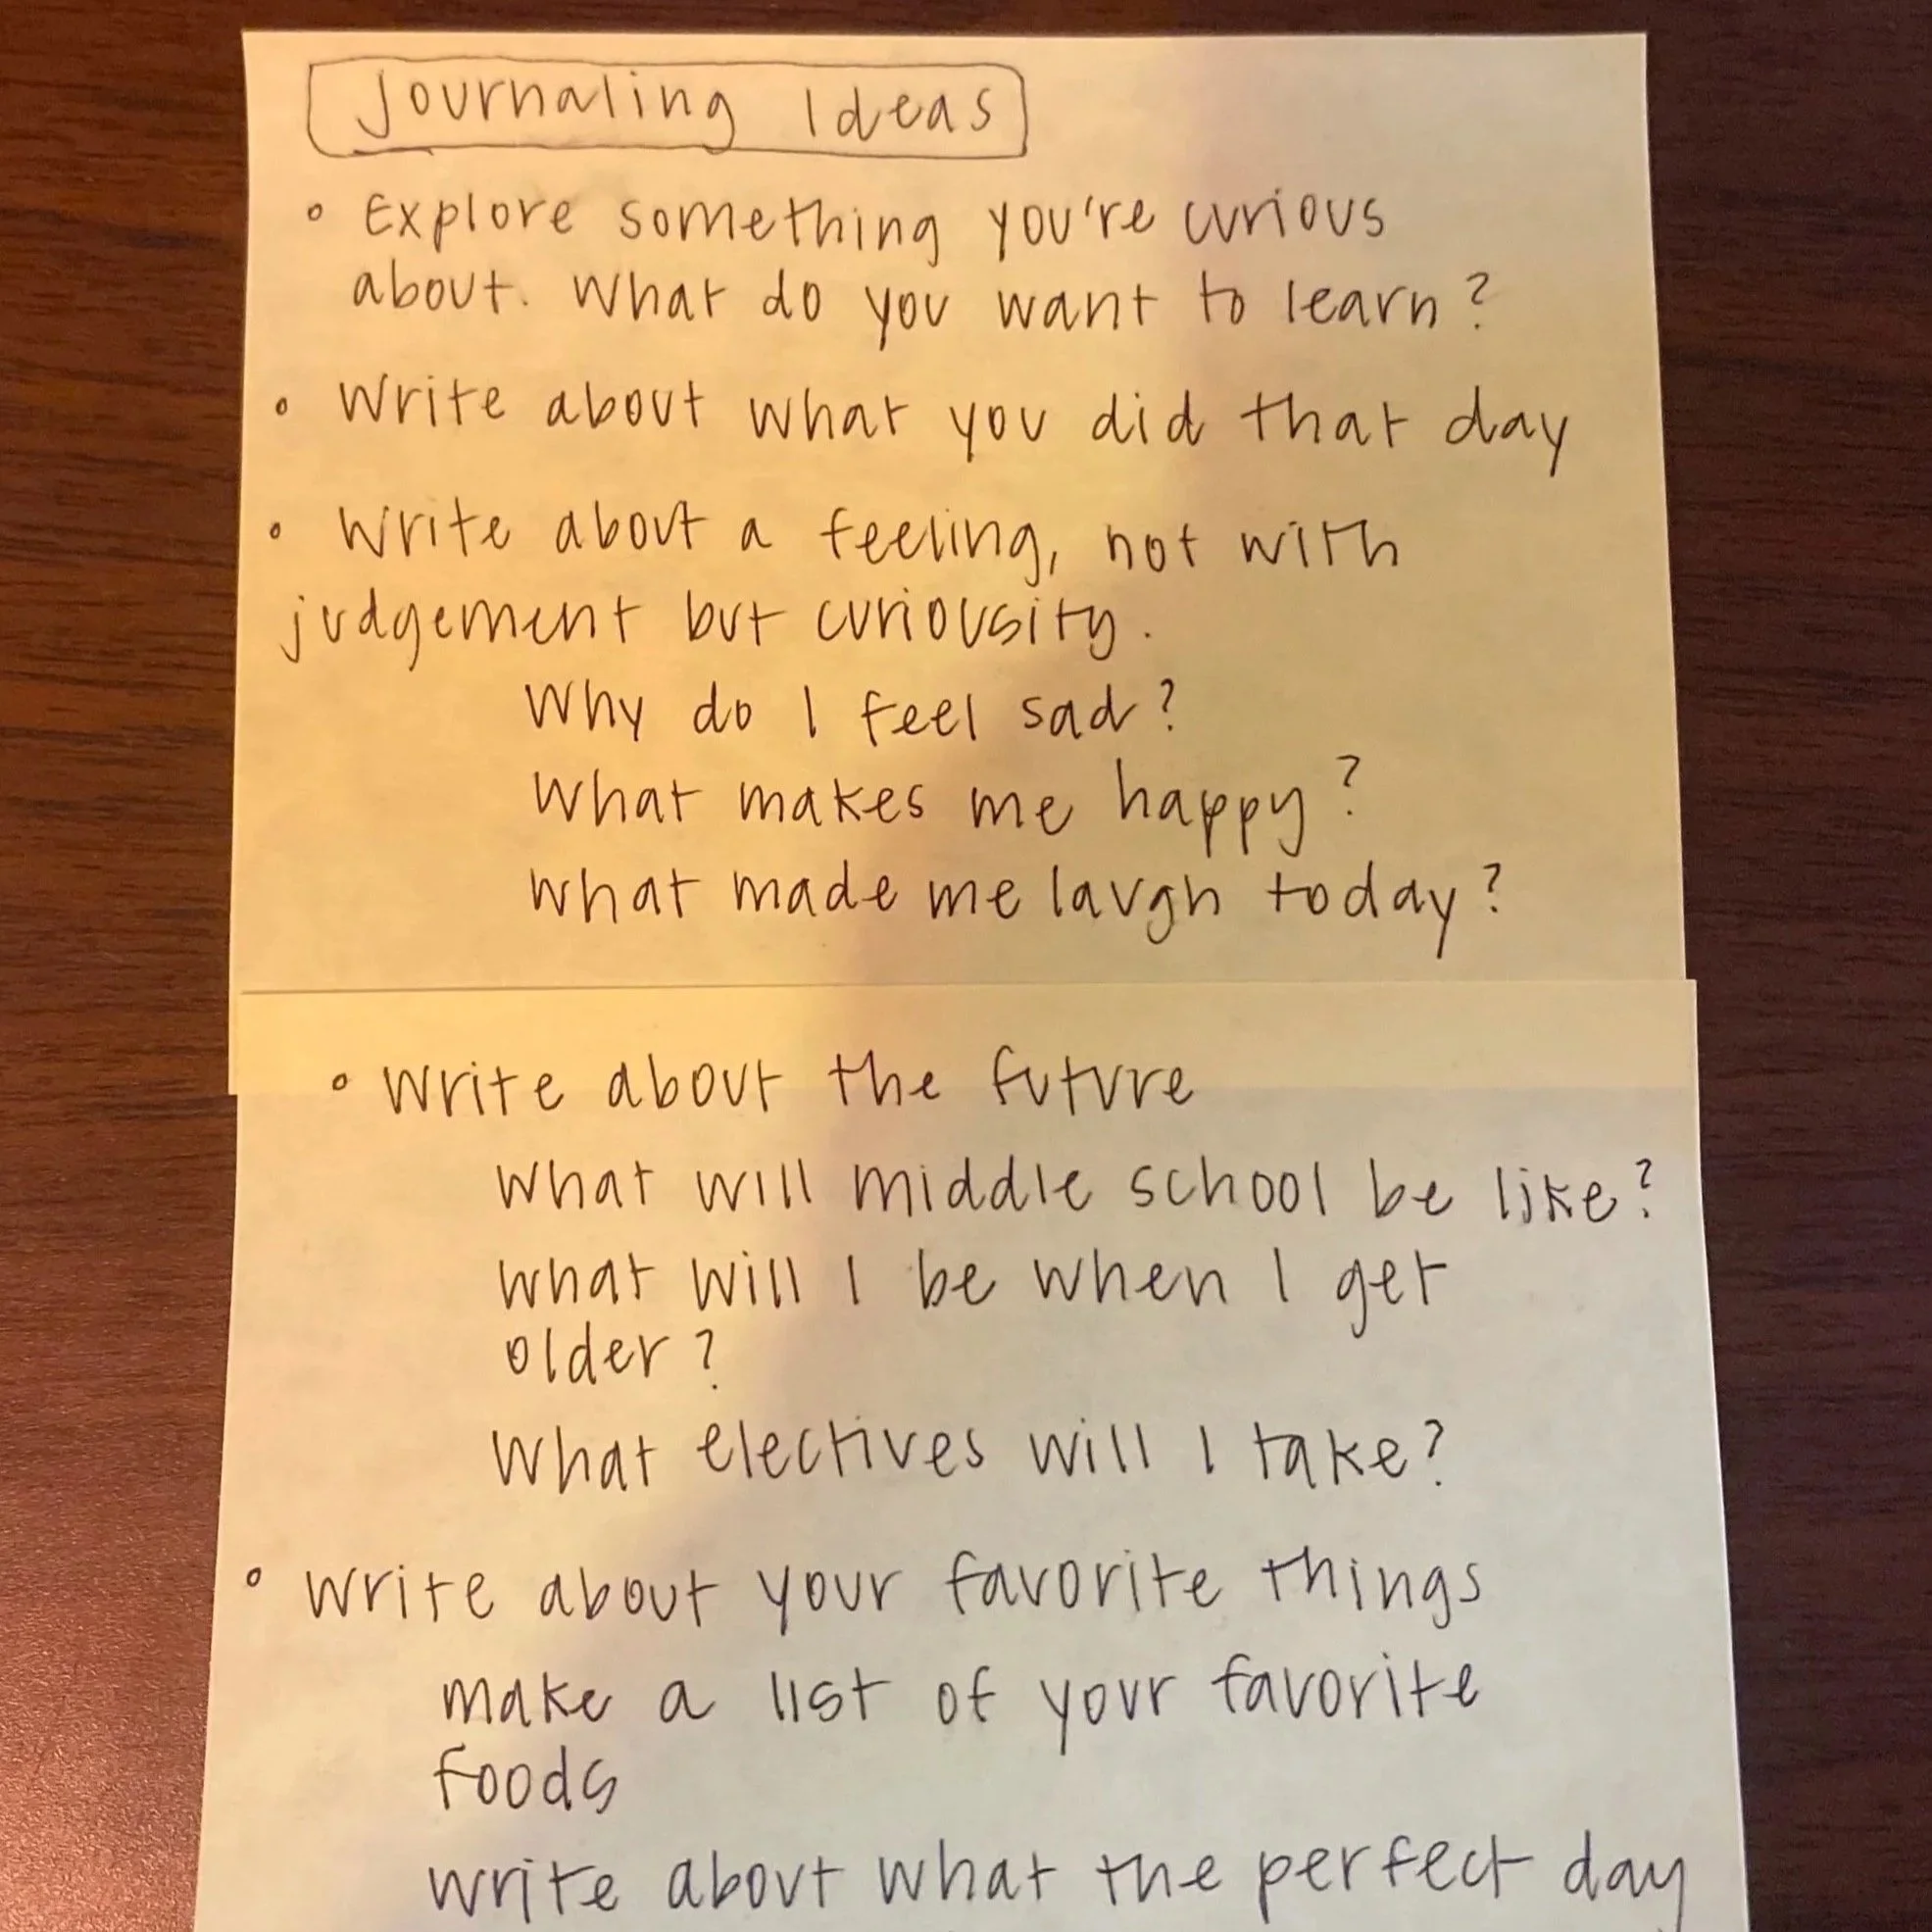 Journaling Ideas
• Explore something you're curious
about. What do you want to learn?
• Write about what you did that day
• Write about a feeling, not with
judgement but curiousity.
Why do I feel sad?
What makes me happy?
What made me laugh today?
• Write about the future
What will middle school be like?
What will I be when I get
older?
What electives will I take?
• Write about your favorite things
make a list of your favorite
foods
write about what the perfect day